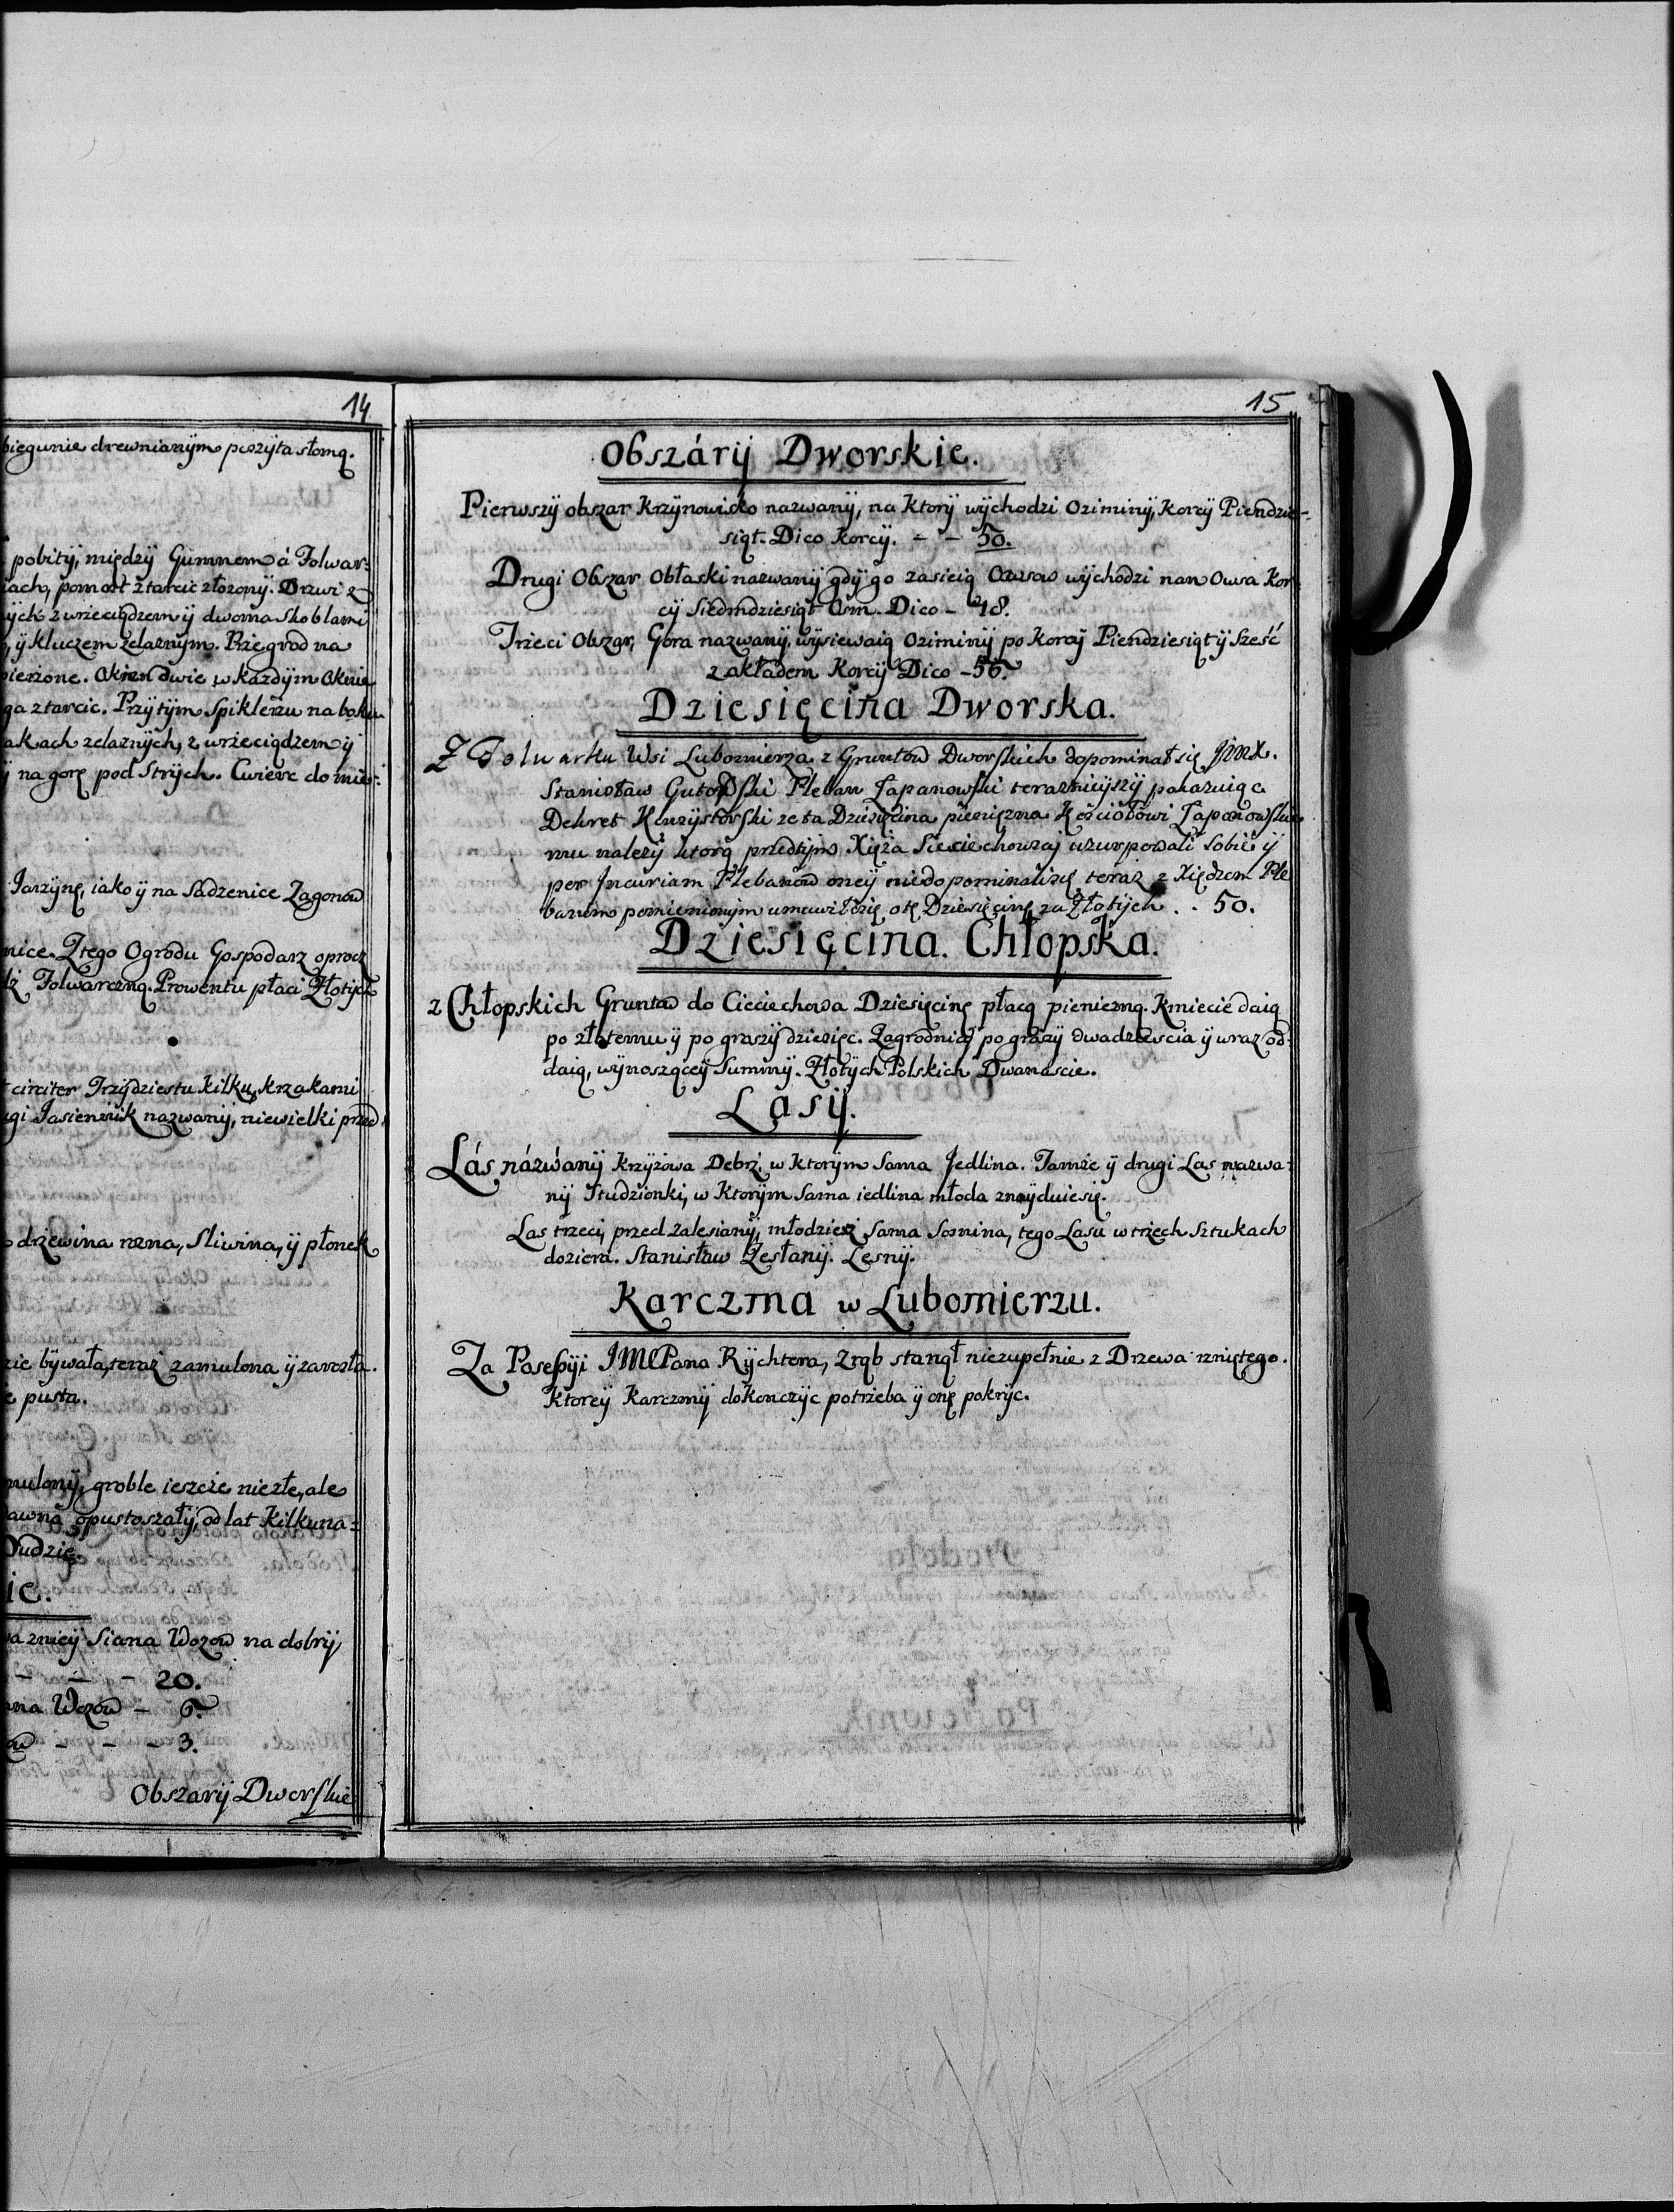 14
biegunie drewnianym poszyta słomą.
pobity, między Gumnem á Folwar:
iach, pomost z tarcic złożony. Drzwi z
ych z wrzeciądzem ÿ dwoma Skoblami
, ÿ kluczem żelaznym. Przegrod na
pierzone. Okien dwie w każdym Oknie
ga z tarcic. Przytym Spiklerzu na boku
akach zelaznych, z wrzeciądzem ÿ
ÿ na gorę pod Strych. Cwierc do mie:
Jarzynę, iako ÿ na Sadzenice Zagonow
nice. Ztego Ogrodu Gospodarz oprocz
dz Folwarczną. Prowentu płaci Złotych
circiter Trzydziestu kilku, krzakami
ugi Jasiennik nazwany, niewielki przed
drzewina rzna, Sliwina, ÿ płonek
zie bywała, teraz zamulona ÿ zarosła.
e pusta.
mulony, groble ieszcze niezłe, ale
awna opustoszały, od lat Kilkuna=
Dudzię.
ie.
wa zniey Siana Wozow na dobry,
– – – 20.
ana Wozow – 6.
ow – – – 3.
Obszary Dworskie
15
Obszáry Dworskie.
Pierwszy obszar Krzynowisko nazwany, na Ktory wychodzi Oziminy, Korcy Piendzie-
siąt. Dico Korcy. – – 50.
Drugi Obszar Obłaski nazwany gdy go zasieią Owsem wychodzi nan Owsa Kor
cy Siedmdziesiąt Osm. Dico – 48.
Trzeci Obszar, Gora nazwany, wysiewaią Oziminy po Korcy Piendziesiąt ÿ Sześć
z okładem Korcy Dico – 56.
Dziesięcina Dworska.
Z Folwarku Wsi Lubomierza z Gruntow Dworskich dopominał się Jmx.
Stanisław Gutowski Pleban Łapanowski teraznieyszy pokazuiąc
Dekret Konsystorski ze ta Dziesięcina pieniezna Kościołowi Łapanowskie
mu nalezy ktorą przedtym Xięża Sieciechowscy uzurpowali sobie ÿ
per Incuriam Plebanow oney niedopominali się, teraz z Xiędzem Ple
banem pomienionym umowił się o tę Dziesięcinę za Złotych . . 50.
Dziesięcina. Chłopska.
z Chłopskich Gruntow do Cieciechowa Dziesięcinę płacą pieniezną. Kmiecie daią
po złotemu ÿ po groszy dziesięc. Zagrodnicy po groszy dwadziescia ÿ wraz od:
daią, wynoszącey Summy. Złotych Polskich Dwanascie.
Lasy.
Lás názwány Krzyżowa Debrz, w Ktorym Sama Jedlina. Tamże ÿ drugi Las nazwa:
ny Studzionki, w Ktorym Sama iedlina młoda znayduie się.
Las trzeci, przed Zalesiany, młodzież Sama Sosnina, tego Lasu w trzech Sztukach
doziera. Stanisław Zesłany. Lesny.
Karczma w Lubomierzu.
Za Posessyi JMCPana Rychtera, Zrąb stanął niezupełnie z Drzewa rzniętego.
Ktorey Karczmy dokonczyc potrzeba ÿ onę pokryc.